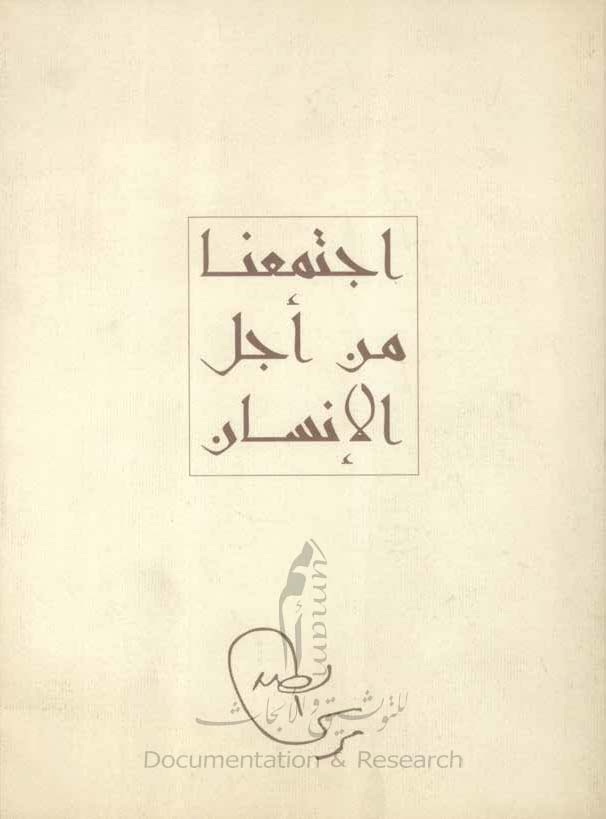 اجتمعنا
من أجل
الإنسان
أمم
umam
للتوثيق والأبحاث
Documentation & Research